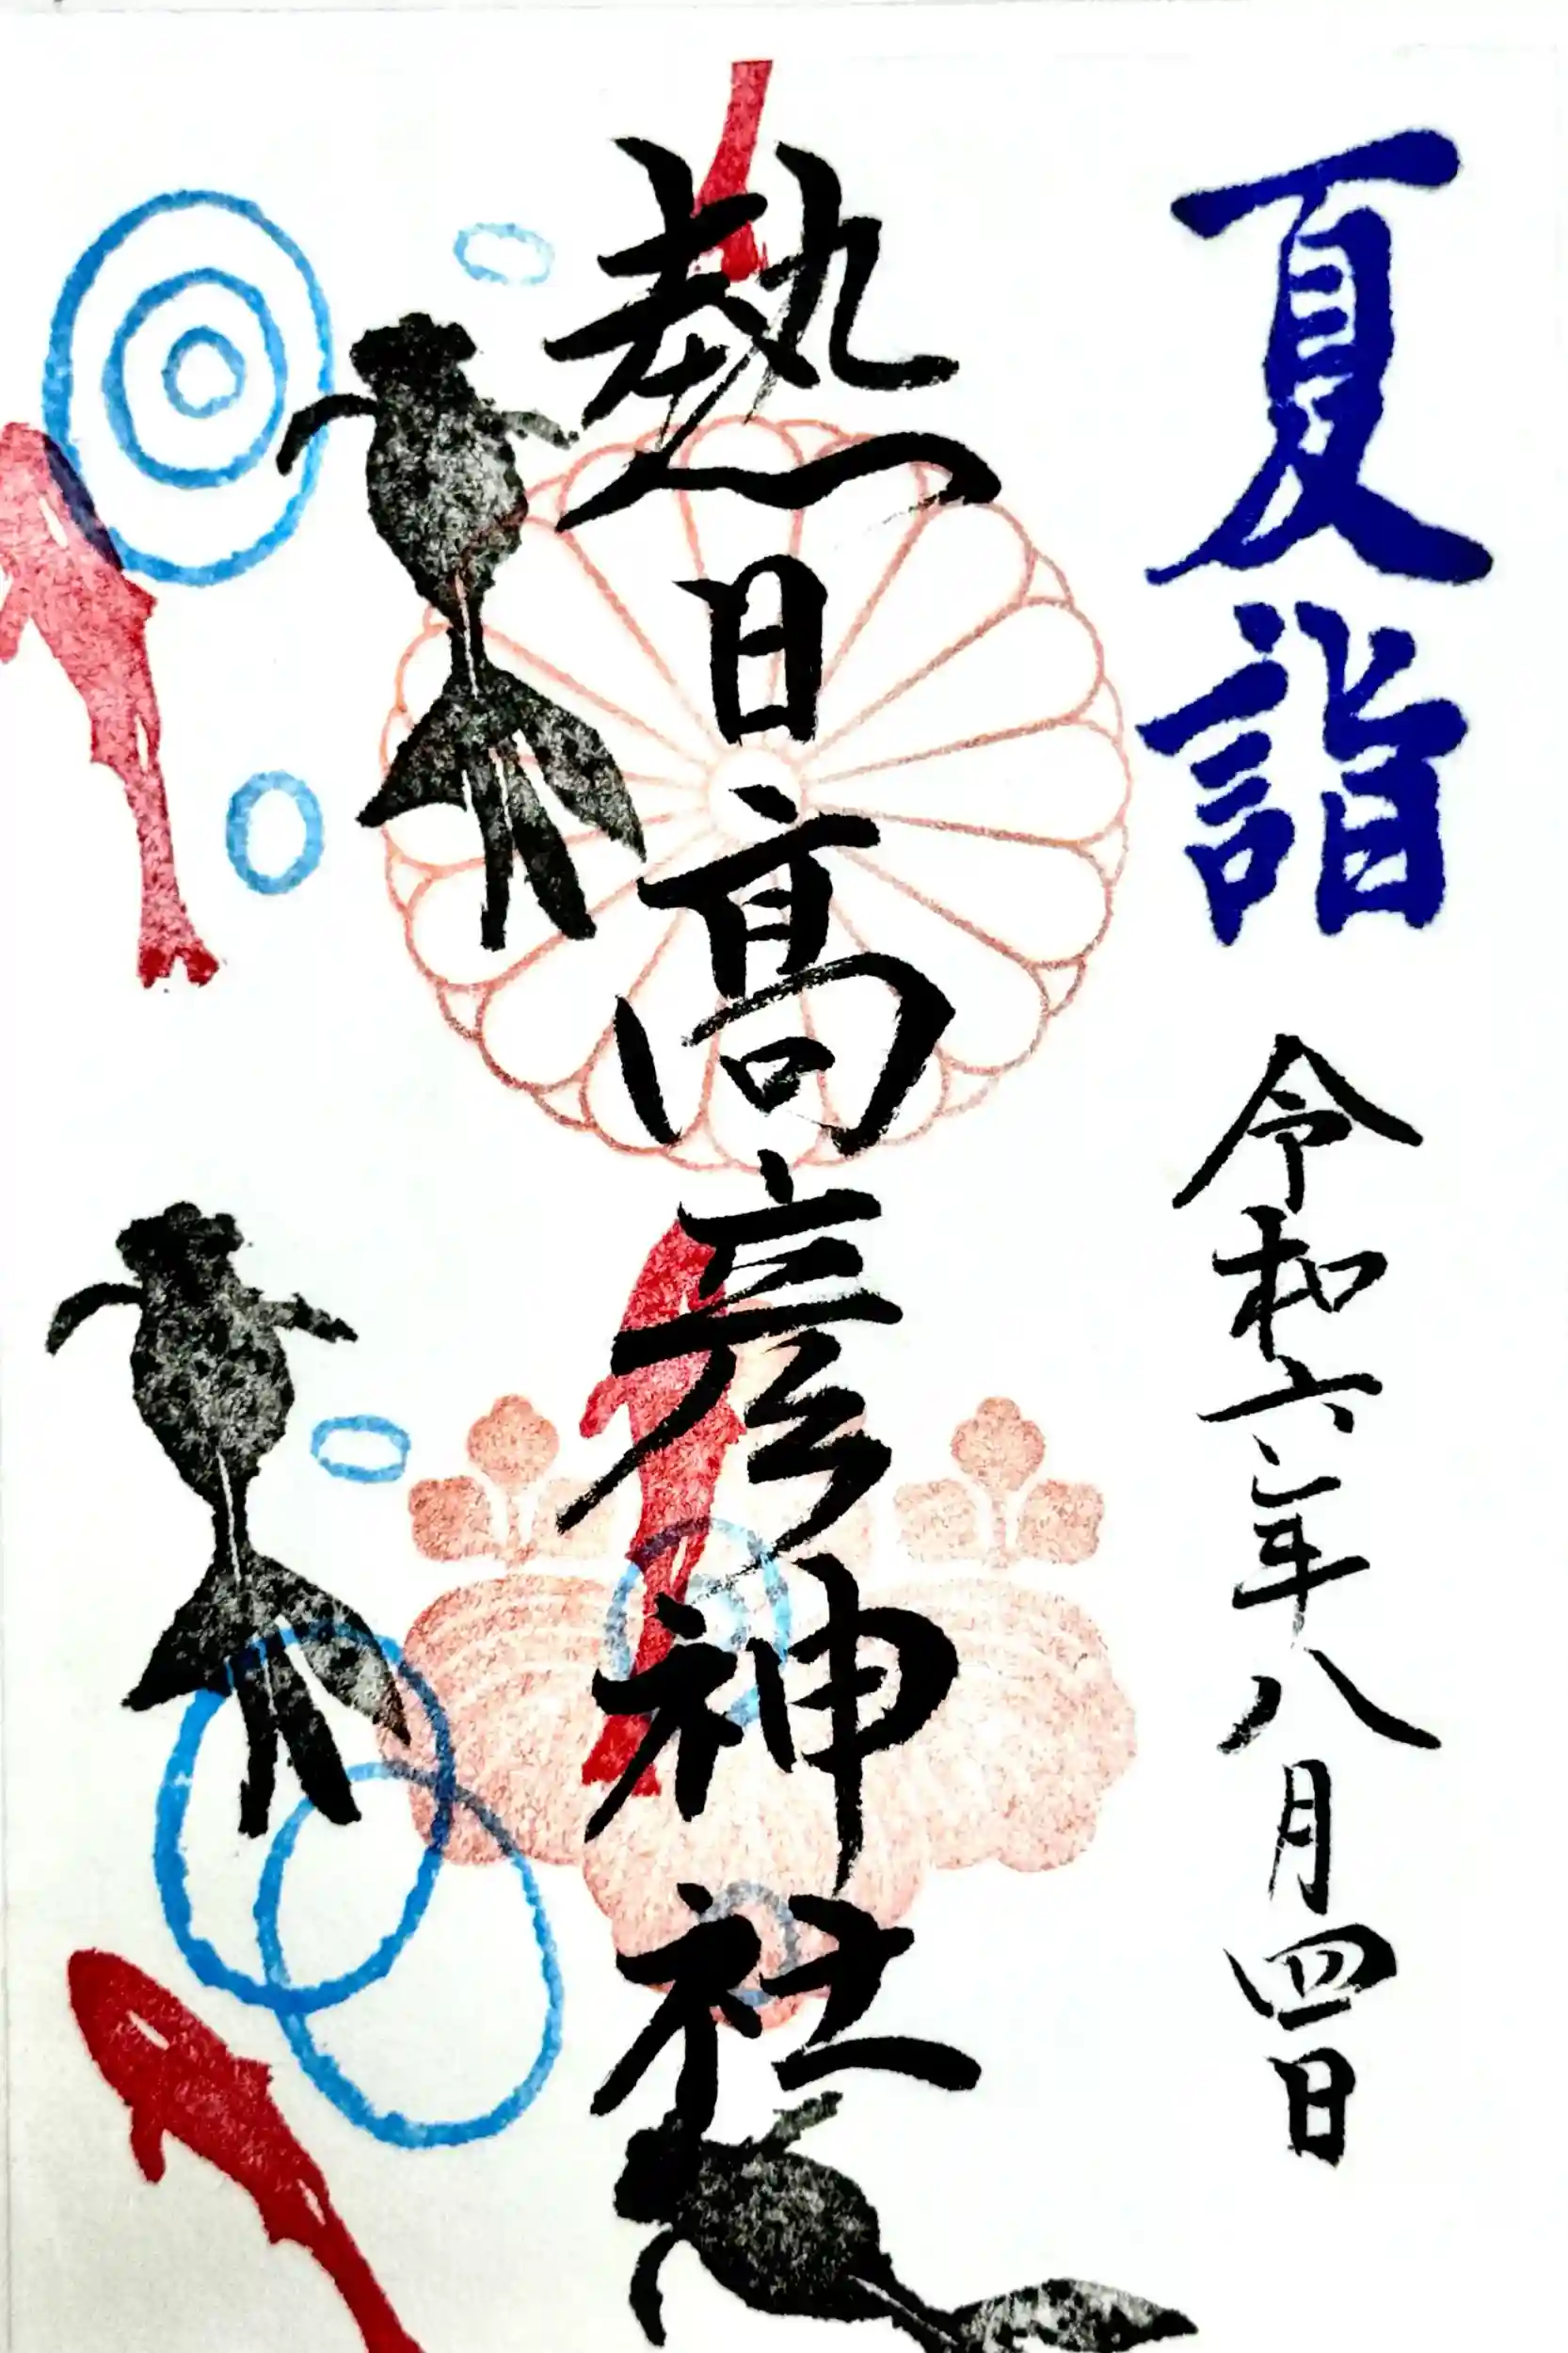 夏詣
令和六年八月四日
熱日高彦神社